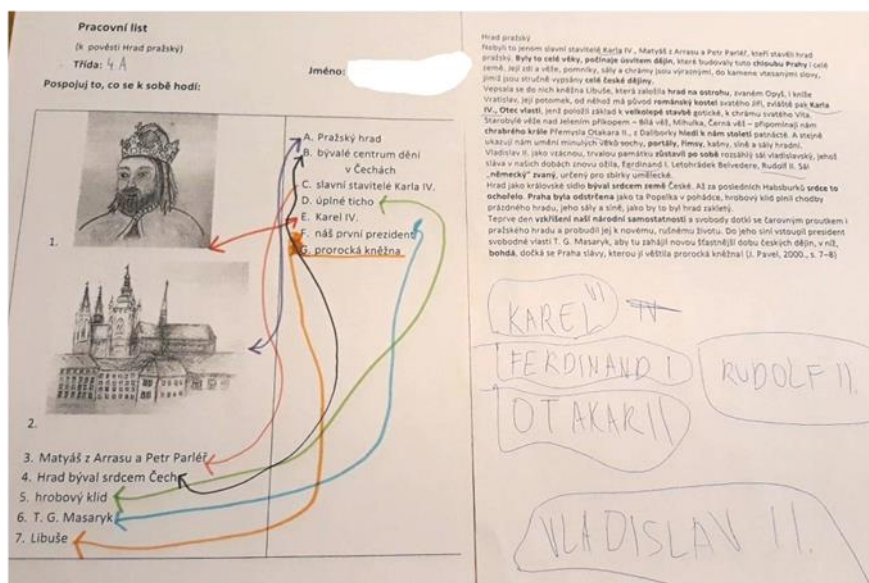 Pracovní list
(k pověsti Hrad pražský)
Třída: 4 A
Jméno:
Pospojuj to, co se k sobě hodí:
A. Pražský hrad
B. bývalé centrum dění
v Čechách
C. slavní stavitelé Karla IV.
D. úplné ticho
E. Karel IV.
F. náš první prezident
G. prorocká kněžna
1.
2.
3. Matyáš z Arrasu a Petr Parléř
4. Hrad býval srdcem Čech
5. hrobový klid
6. T. G. Masaryk
7. Libuše
Hrad pražský
Nebyli to jenom slavní stavitelé Karla IV., Matyáš z Arrasu a Petr Parléř, kteří stavěli hrad
pražský. Byly to celé věky, počínaje úsvitem dějin, které budovaly tuto chloubu Prahy i celé
země. Její zdi a věže, pomníky, sály a chrámy jsou výraznými, do kamene vtesanými slovy,
jimiž jsou stručně vypsány celé české dějiny.
Vepsala se do nich kněžna Libuše, která založila hrad na ostrohu, zvaném Opyš, i kníže
Vratislav, její potomek, od něhož má původ románský kostel svatého Jiří, zvláště pak Karla
IV., Otec vlasti, jenž položil základ k velkolepé stavbě gotické, k chrámu svatého Víta.
Starobylé věže nad Jelením příkopem – Bílá věž, Mihulka, Černá věž – připomínají nám
chrabrého krále Přemysla Otakara II., z Daliborky hledí k nám století patnácté. A stejně
ukazují nám umění minulých věků sochy, portály, římsy, kašny, síně a sály hradní.
Vladislav II. jako vzácnou, trvalou památku zůstavil po sobě rozsáhlý sál vladislavský, jehož
sláva v našich dobách znovu ožila, Ferdinand I. Letohrádek Belvedere, Rudolf II. Sál
„německý“ zvaný, určený pro sbírky umělecké.
Hrad jako královské sídlo býval srdcem země České. Až za posledních Habsburků srdce to
ochořelo. Praha byla odstrčena jako ta Popelka v pohádce, hrobový klid plnil chodby
prázdného hradu, jeho sály a síně, jako by to byl hrad zakletý.
Teprve den vzkříšení naší národní samostatnosti a svobody dotkl se čarovným proutkem i
pražského hradu a probudil jej k novému, rušnému životu. Do jeho síní vstoupil president
svobodné vlasti T. G. Masaryk, aby tu zahájil novou šťastnější dobu českých dějin, v níž,
bohdá, dočká se Praha slávy, kterou jí věštila prorocká kněžna! (J. Pavel, 2000., s. 7–8)
KAREL VI
FERDINAND I
RUDOLF II.
OTAKAR II
VLADISLAV II.